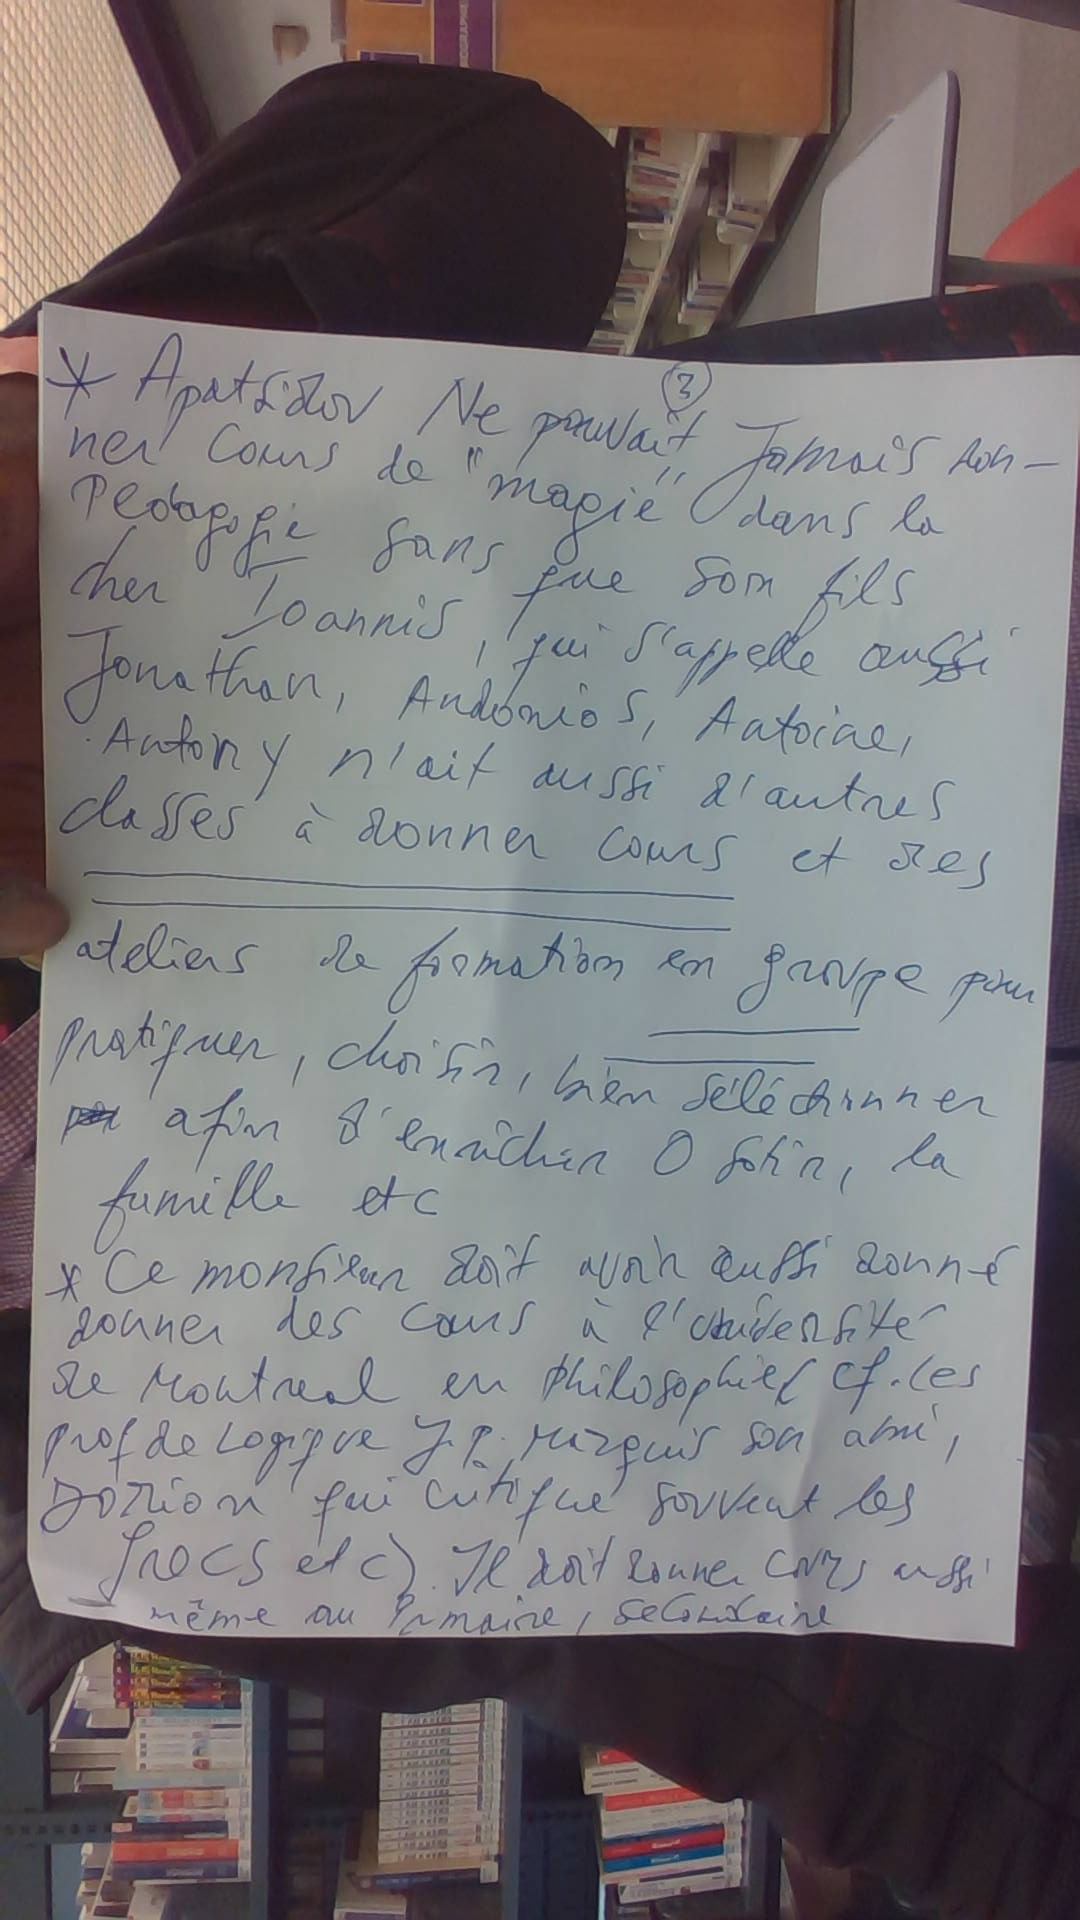 3
* Apatsidov Ne pouvait Jamais don-
ner Cours de "magie" dans la
Pedagogie sans que son fils
cher Ioannis, qui s'appelle aussi
Jonathan, Andonios, Antoine,
Antony n'ait aussi d'autres
classes à donner cours et des
ateliers de formation en groupe pour
pratiquer, choisir, bien séléctionner
afin d'enrichir la
famille etc
* Ce monsieur doit avoir aussi donné
donner des cours à l'université
de Montreal en philosophie( cf. les
prof de Logique J.P. Marquis son ami,
qui critique souvent les
grecs etc). Il doit donner cours aussi
même au Primaire, secondaire